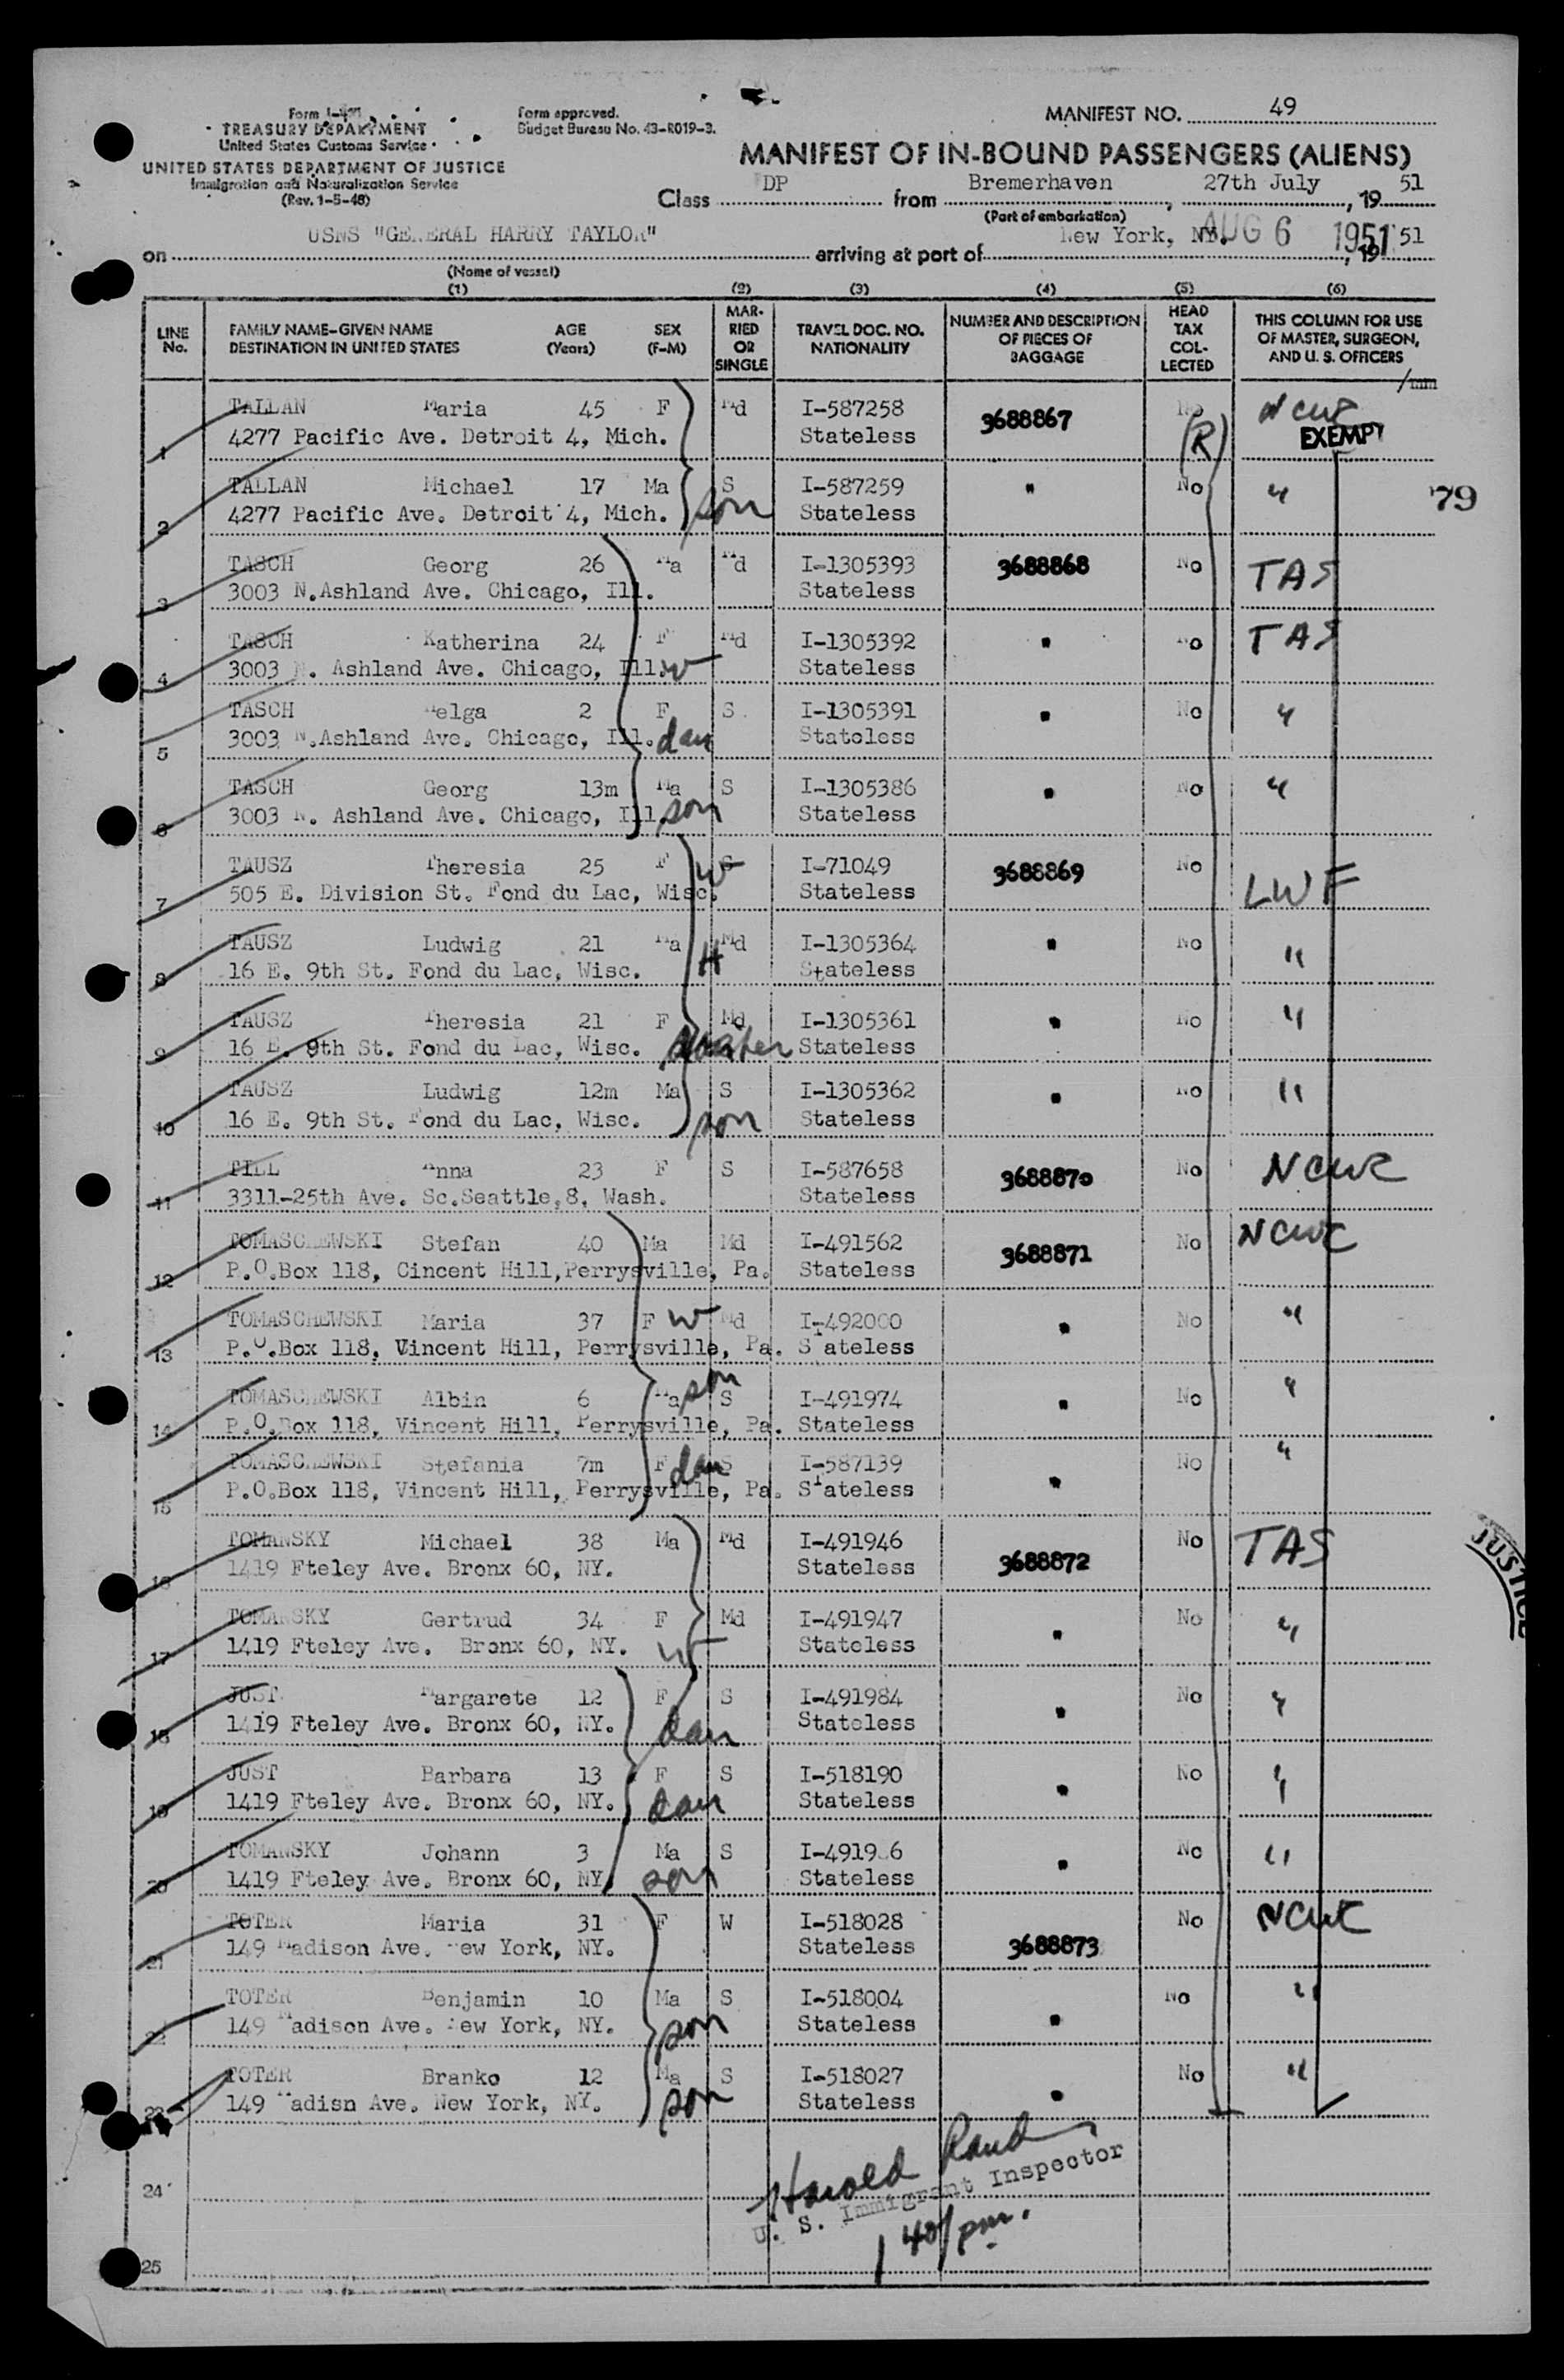 Form I-
TREASURY DEPARTMENT
United States Customs Service
UNITED STATES DEPARTMENT OF JUSTICE
Immigration and Naturalization Service
(Rev. 1-5-48)
Form approved.
Budget Bureau No. 43-R019-3.
MANIFEST NO. 49
MANIFEST OF IN-BOUND PASSENGERS (ALIENS)
Class DP from Bremerhaven, 27th July, 19 51
(Port of embarkation)
on USNS "GENERAL HARRY TAYLOR" arriving at port of New York, NY. AUG 6 1951, 19 51
(Name of vessel)
(1) (2) (3) (4) (5) (6)
LINE No. FAMILY NAME-GIVEN NAME DESTINATION IN UNITED STATES AGE (Years) SEX (F-M) MARRIED OR SINGLE TRAVEL DOC. NO. NATIONALITY NUMBER AND DESCRIPTION OF PIECES OF BAGGAGE HEAD TAX COLLECTED THIS COLUMN FOR USE OF MASTER, SURGEON, AND U. S. OFFICERS
/mm
1 TALLAN Maria 45 F Md I-587258 3688867 No NCWC
4277 Pacific Ave. Detroit 4, Mich. Stateless (R) EXEMPT
2 TALLAN Michael 17 Ma S I-587259 " No "
4277 Pacific Ave. Detroit 4, Mich. son Stateless
79
3 TASCH Georg 26 Ma Md I-1305393 3688868 No TAS
3003 N.Ashland Ave. Chicago, Ill. Stateless
4 TASCH Katherina 24 F Md I-1305392 " No TAS
3003 N. Ashland Ave. Chicago, Ill. w Stateless
5 TASCH Helga 2 F S. I-1305391 " No "
3003 N.Ashland Ave. Chicago, Ill. dau Stateless
6 TASCH Georg 13m Ma S I-1305386 " No "
3003 N. Ashland Ave. Chicago, Ill. son Stateless
7 TAUSZ Theresia 25 F S w I-71049 3688869 No LWF
505 E. Division St. Fond du Lac, Wisc. Stateless
8 TAUSZ Ludwig 21 Ma H Md I-1305364 " No "
16 E. 9th St. Fond du Lac, Wisc. Stateless
9 TAUSZ Theresia 21 F Md I-1305361 " No "
16 E. 9th St. Fond du Lac, Wisc. Stateless
10 TAUSZ Ludwig 12m Ma S I-1305362 " No "
16 E. 9th St. Fond du Lac, Wisc. son Stateless
11 TILL Anna 23 F S I-587658 3688870 No NCWC
3311-25th Ave. So.Seattle,8, Wash. Stateless
12 TOMASCHEWSKI Stefan 40 Ma Md I-491562 3688871 No NCWC
P.O.Box 118, Cincent Hill,Perrysville, Pa. Stateless
13 TOMASCHEWSKI Maria 37 F w Md I-492000 " No "
P.O.Box 118, Vincent Hill, Perrysville, Pa. Stateless
14 TOMASCHEWSKI Albin 6 Ma son S I-491974 " No "
P.O.Box 118, Vincent Hill, Perrysville, Pa. Stateless
15 TOMASCHEWSKI Stefania 7m F dau S I-587139 " No "
P.O.Box 118, Vincent Hill, Perrysville, Pa. Stateless
16 TOMANSKY Michael 38 Ma Md I-491946 3688872 No TAS
1419 Fteley Ave. Bronx 60, NY. Stateless
JUSTICE
17 TOMANSKY Gertrud 34 F Md I-491947 " No "
1419 Fteley Ave. Bronx 60, NY. w Stateless
18 JUST Margarete 12 F S I-491984 " No "
1419 Fteley Ave. Bronx 60, NY. dau Stateless
19 JUST Barbara 13 F S I-518190 " No "
1419 Fteley Ave. Bronx 60, NY. dau Stateless
20 TOMANSKY Johann 3 Ma S " No "
1419 Fteley Ave. Bronx 60, NY. son Stateless
21 TOTER Maria 31 F W I-518028 3688873 No NCWC
149 Madison Ave. New York, NY. Stateless
22 TOTER Benjamin 10 Ma S I-518004 " No "
149 Madison Ave. New York, NY. son Stateless
23 TOTER Branko 12 Ma S I-518027 " No "
149 Madisn Ave. New York, NY. son Stateless
Harold Rand
U. S. Immigrant Inspector
24
1 40/pm.
25